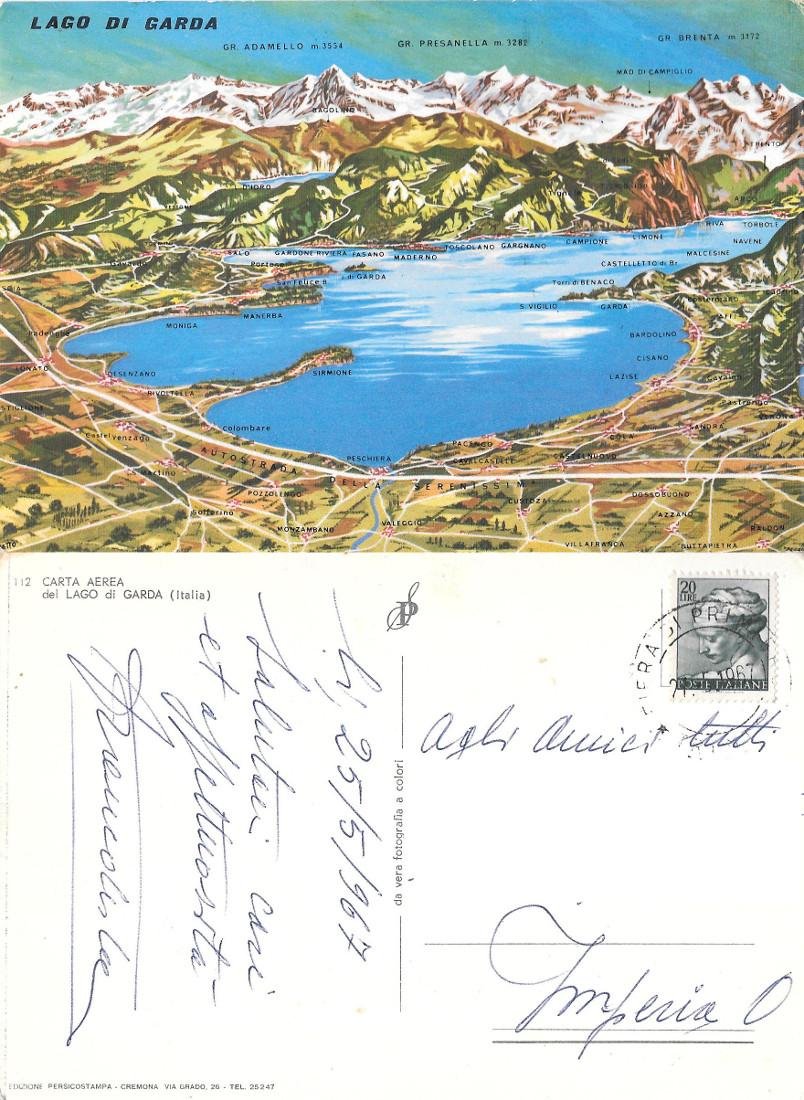 LAGO DI GARDA
GR. ADAMELLO m. 3554
GR. PRESANELLA m. 3282
GR. BRENTA m 3172
MAD DI CAMPIGLIO
BAGOLINO
TRENTO
D'IDRO
ARCO
RIVA
TORBOLE
SALO
GARDONE RIVIERA
FASANO
MADERNO
TOSCOLANO
GARGNANO
CAMPIONE
LIMONE
NAVENE
MALCESINE
Portese
I. di GARDA
CASTELLETTO di Br
San Felice B
Torri di BENACO
MANERBA
S. VIGILIO
GARDA
Costermano
AFFI
MONIGA
Padenghe
BARDOLINO
CISANO
LONATO
DESENZANO
SIRMIONE
LAZISE
Cavaion
RIVOLTELLA
Pastrengo
VERONA
Colombare
Castelvenzago
PACENGO
COLA
SANDRA
AUTOSTRADA DELLA SERENISSIMA
PESCHIERA
CAVALCASELLE
CASTELNUOVO
S.Martino
POZZOLENGO
Solferino
CUSTOZA
DOSSOBUONO
AZZANO
MONZAMBANO
VALEGGIO
VILLAFRANCA
BUTTAPIETRA
RALDON
112 CARTA AEREA
del LAGO di GARDA (Italia)
SP
20
LIRE
POSTE ITALIANE
FIERA DI PRI
1967
lì, 25/5/967
Saluti cari
et affettuosità
da vera fotografia a colori
Agli Amici tutti
Imperia O
EDIZIONE PERSICOSTAMPA - CREMONA VIA GRADO, 26 - TEL. 25247